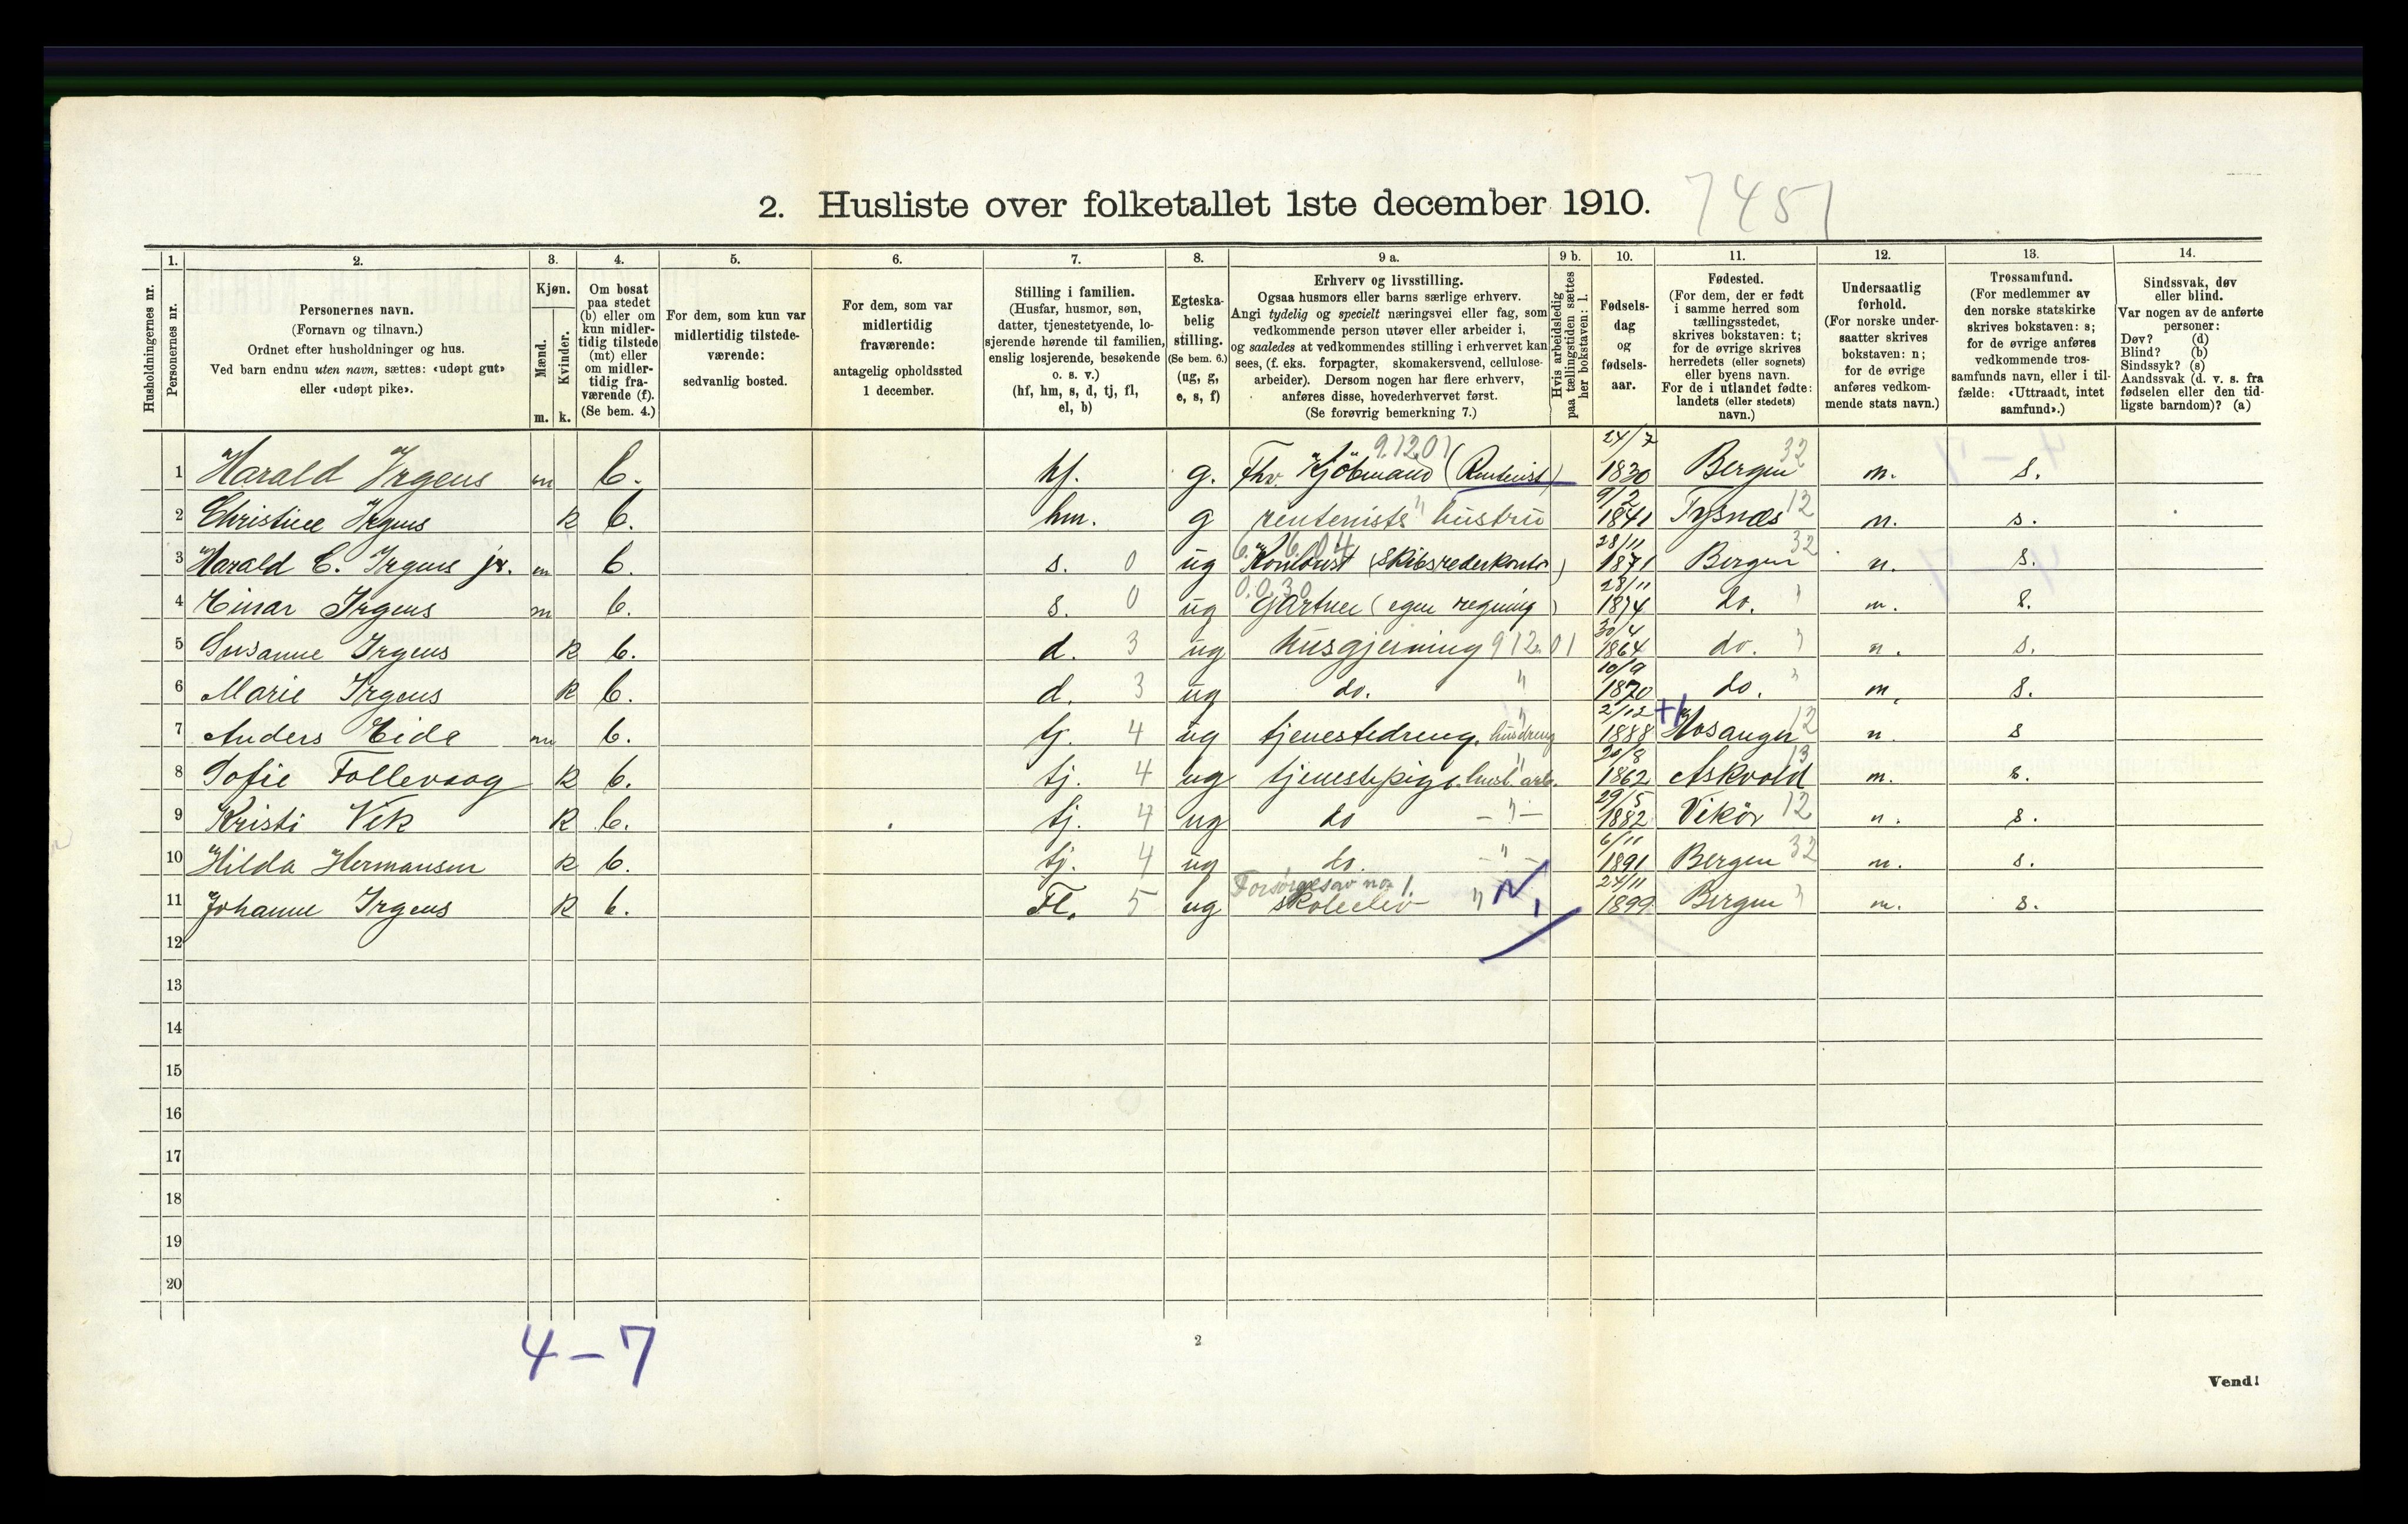 2. Husliste over folketallet 1ste december 1910. 7451
Husholdningernes nr.
1. Personernes nr.
2. Personernes navn. (Fornavn og tilnavn.) Ordnet efter husholdninger og hus. Ved barn endnu uten navn, sættes: «udøpt gut» eller «udøpt pike».
3. Kjøn. Mænd. m. Kvinder. k.
4. Om bosat paa stedet (b) eller om kun midlertidig tilstede (mt) eller om midlertidig fraværende (f). (Se bem. 4.)
5. For dem, som kun var midlertidig tilstedeværende: sedvanlig bosted.
6. For dem, som var midlertidig fraværende: antagelig opholdssted 1 december.
7. Stilling i familien. (Husfar, husmor, søn, datter, tjenestetyende, losjerende hørende til familien, enslig losjerende, besøkende o. s. v.) (hf, hm, s, d, tj, fl, el, b)
8. Egteskabelig stilling. (Se bem. 6.) (ug, g, e, s, f)
9 a. Erhverv og livsstilling. Ogsaa husmors eller barns særlige erhverv. Angi tydelig og specielt næringsvei eller fag, som vedkommende person utøver eller arbeider i, og saaledes at vedkommendes stilling i erhvervet kan sees, (f. eks. forpagter, skomakersvend, cellulosearbeider). Dersom nogen har flere erhverv, anføres disse, hovederhvervet først. (Se forøvrig bemerkning 7.)
9 b. Hvis arbeidsledig paa tællingstiden sættes her bokstaven: l.
10. Fødselsdag og fødselsaar.
11. Fødested. (For dem, der er født i samme herred som tællingsstedet, skrives bokstaven: t; for de øvrige skrives herredets (eller sognets) eller byens navn. For de i utlandet fødte: landets (eller stedets) navn.)
12. Undersaatlig forhold. (For norske undersaatter skrives bokstaven: n; for de øvrige anføres vedkommende stats navn.)
13. Trossamfund. (For medlemmer av den norske statskirke skrives bokstaven: s; for de øvrige anføres vedkommende trossamfunds navn, eller i tilfælde: «Uttraadt, intet samfund».)
14. Sindssvak, døv eller blind. Var nogen av de anførte personer: Døv? (d) Blind? (b) Sindssyk? (s) Aandssvak (d. v. s. fra fødselen eller den tidligste barndom)? (a)
1 Harald Irgens m b. hf. g. Fhv. Kjöbmand (Rentenist) 9.12.01 24/7 1830 Bergen 32 n. s.
2 Christine Irgens k b. hm. g rentenists hustru " 9/2 1841 Tysnæs 12 n. s.
3 Harald C. Irgens jr. m b. s. 0 ug Kontorist (Skibsrederkontor) 6.6.04 28/11 1871 Bergen 32 n. s.
4 Einar Irgens m b. s. 0 ug Gartner (egen regning) 0.0.30 28/11 1874 do. " n. s.
5 Susanne Irgens k b. d. 3 ug husgjerning 912.01 30/4 1864 do. " n. s.
6 Marie Irgens k b. d. 3 ug do. " 10/9 1870 do. " n. s.
7 Anders Eide m b. tj. 4 ug tjenestedreng. husdreng " 2/12 1888 Hosanger 12 n. s
8 Sofie Follevaag k b. tj. 4 ug tjenestepige. husl. arb. " 20/8 1862 Askvold 13 n. s.
9 Kristi Vik k b. tj. 4 ug do — " — 29/5 1882 Vikör 12 n. s.
10 Hilda Hermansen k b. tj. 4 ug do. — " — 6/11 1891 Bergen 32 n. s.
11 Johanne Irgens k b. Fl. 5 ug Forsørges av no 1. skoleelev " N, 24/11 1899 Bergen " n. s.
12
13
14
15
16
17
18
19
20
4 – 7
2
Vend!